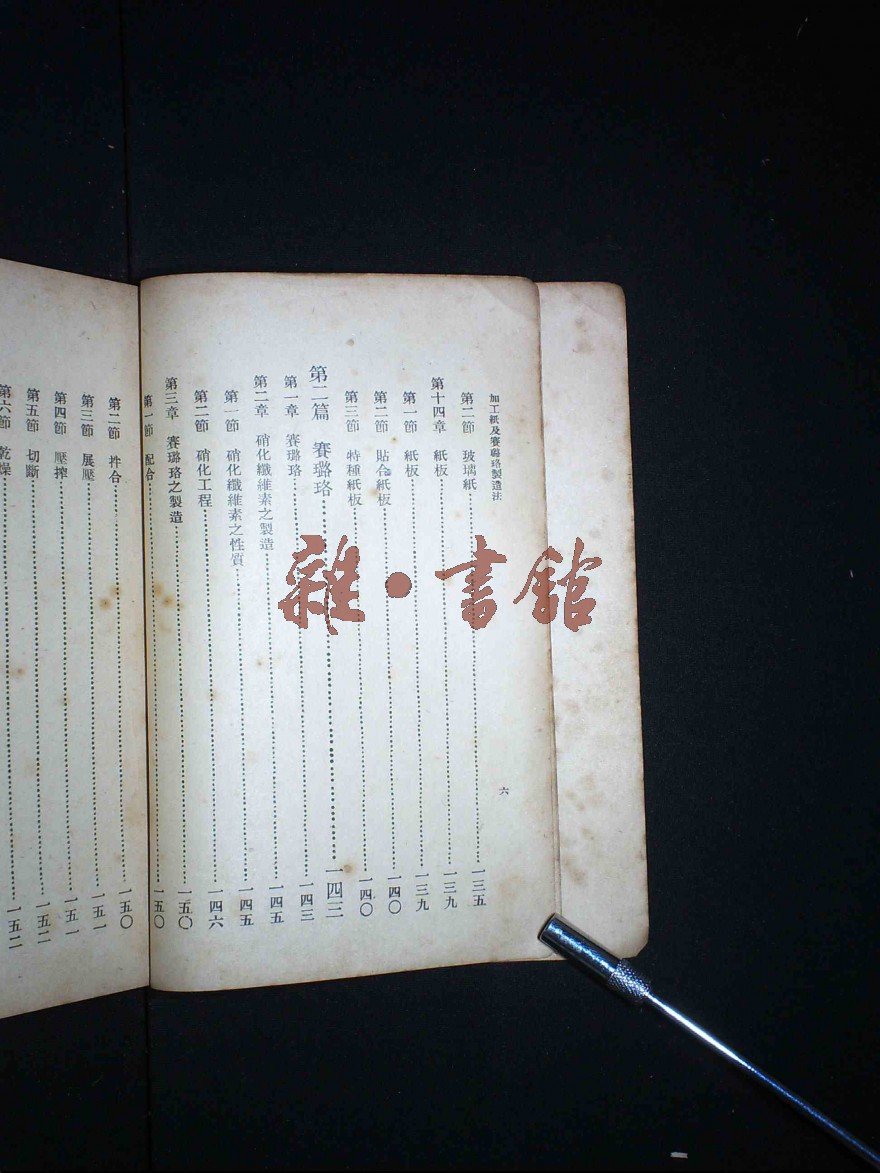 加工紙及賽璐珞製造法
六
第二節 玻璃紙 一三五
第十四章 紙板 一三九
第一節 紙板 一三九
第二節 貼合紙板 一四〇
第三節 特種紙板 一四〇
第二篇 賽璐珞 一四三
第一章 賽璐珞 一四三
第二章 硝化纖維素之製造 一四五
第一節 硝化纖維素之性質 一四五
第二節 硝化工程 一四六
第三章 賽璐珞之製造 一五〇
第一節 配合 一五〇
第二節 拌合 一五〇
第三節 展壓 一五一
第四節 壓搾 一五一
第五節 切斷 一五二
第六節 乾燥 一五二
雜·書館